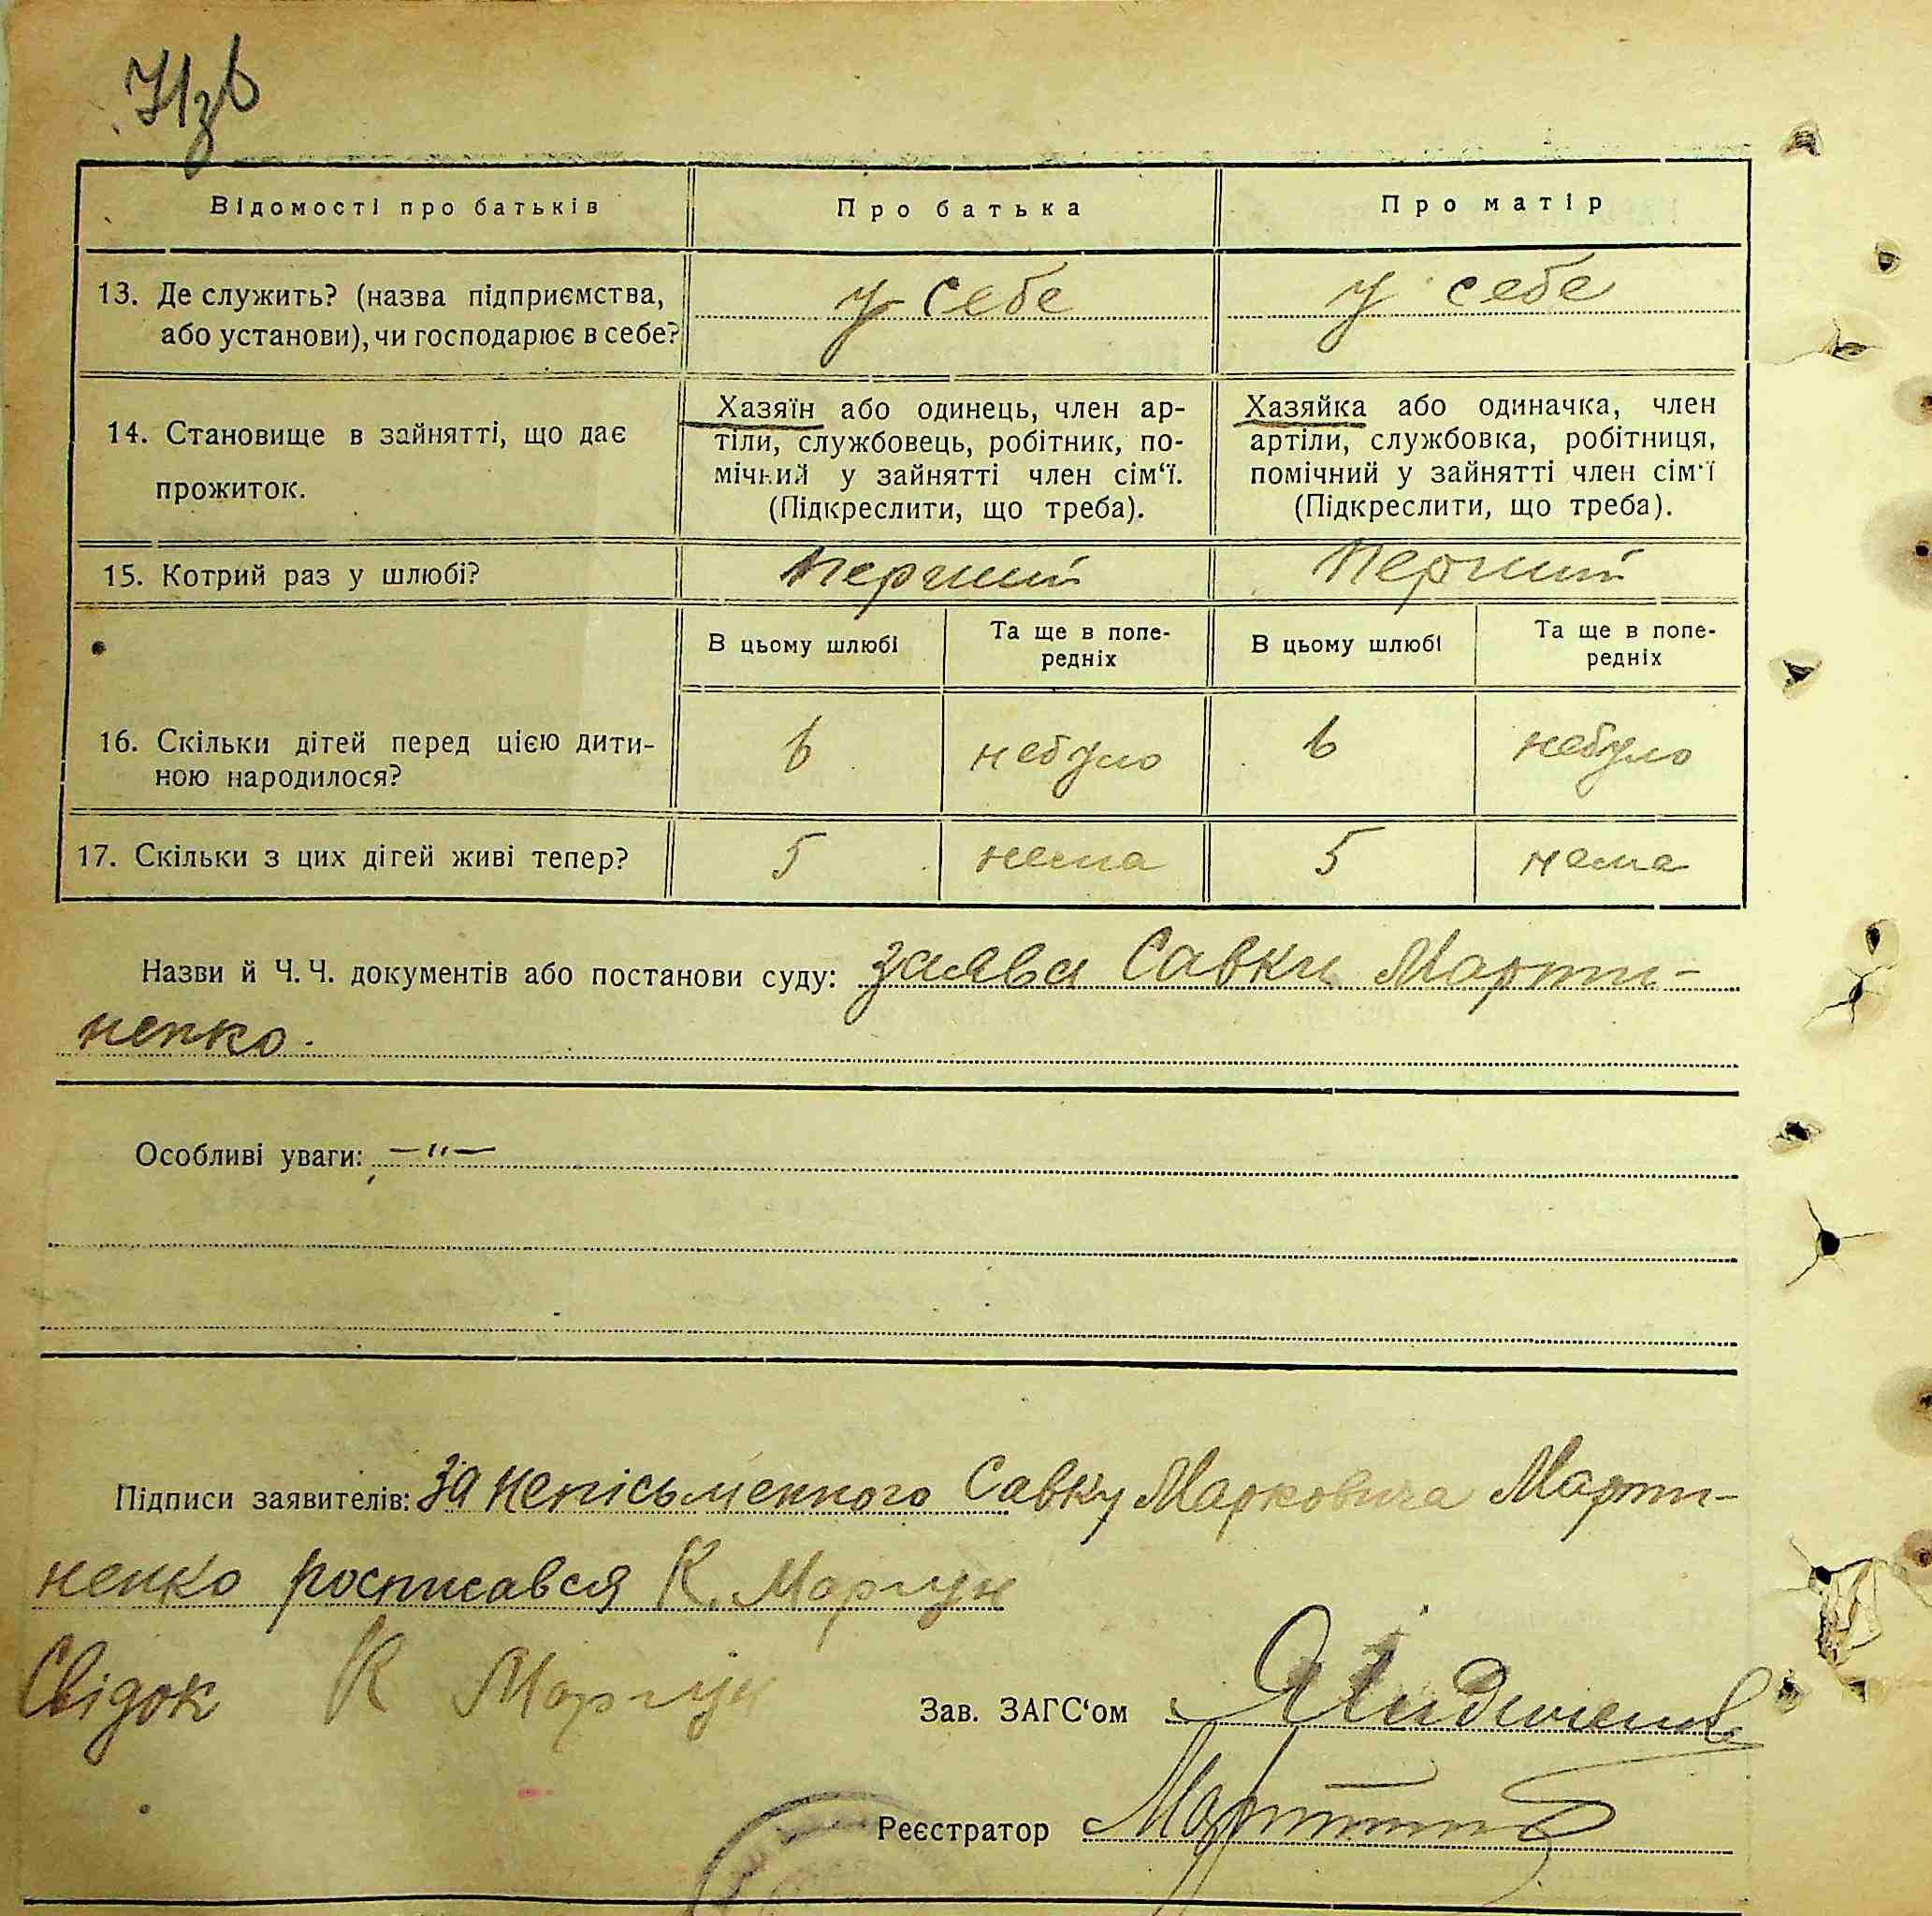 Відомості про батьків
Про батька
Про матір
13. Де служить? (назва підприємства,
або установи), чи господарює в себе?
у себе
у себе
14. Становище в зайнятті, що дає
прожиток.
Хазяїн або одинець, член ар-
тіли, службовець, робітник, по-
мічний у зайнятті член сім‘ї.
(Підкреслити, що треба).
Хазяйка або одиначка, член
артіли, службовка, робітниця,
помічний у зайнятті член сім‘ї
(Підкреслити, що треба).
15. Котрий раз у шлюбі?
перший
перший
В цьому шлюбі
Та ще в попе-
редніх
В цьому шлюбі
Та ще в попе-
редніх
16. Скільки дітей перед цією дити-
ною народилося?
6
небуло
6
небуло
17. Скільки з цих дітей живі тепер?
5
нема
5
нема
Назви й Ч. Ч. документів або постанови суду: заява Савки Марти-
ненко.
Особливі уваги: —"—
Підписи заявителів: За непісьменного Савку Марковича Марти-
ненко росписався К. Моргун
Свідок К Моргун
Зав. ЗАГС‘ом
Реєстратор